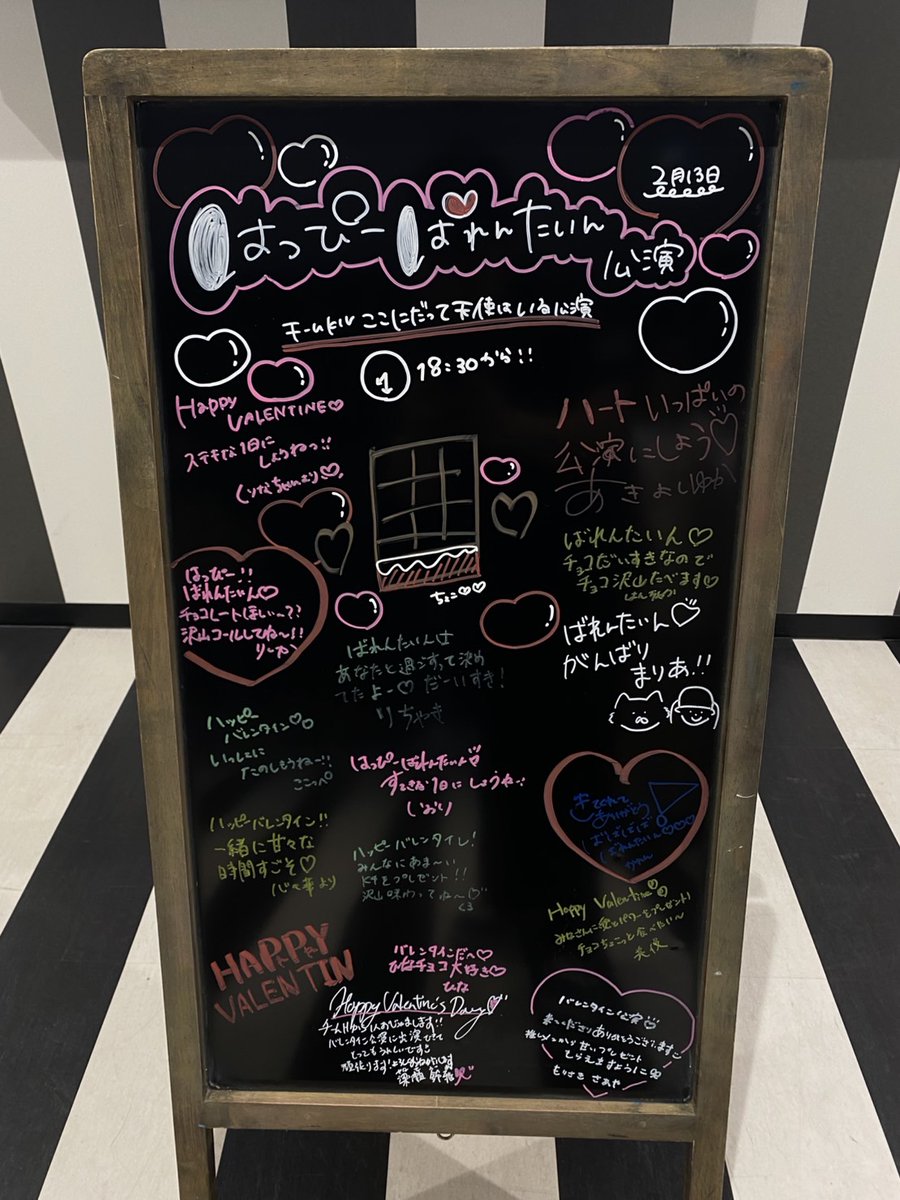 2月13日
はっぴーばれんたいん
公演
チームKⅣ ここにだって天使はいる公演
① 18:30から!!
Happy
VALENTINE♡
ステキな1日に
しようねっ!!
ハートいっぱいの
公演にしよう♡
ばれんたいん♡
チョコだいすきなので
チョコ沢山たべます♡
はっぴー!!
ばれんたいん♡
チョコレートほしいっ??
沢山コールしてね〜!!
りーか
ちょこ♡♡
ばれんたいんは
あなたと過ごすって決め
てたよー♡ だーいすき!
りちゃき
ばれんたいん♡
がんばり
まりあ!!
ハッピー
バレンタイン♡
いっしょに
たのしもうねー!!
はっぴーばれんたいん♡
すてきな1日にしようね!!
しおり
来てくれて
ありがとう
ばればれば!
ばれんたいん♡♡♡
ハッピーバレンタイン!!
一緒に甘々な
時間すごそ♡
ハッピーバレンタイン!
みんなにあま〜い
K4をプレゼント!!
沢山味わってね〜♡
Happy Valentine
みなさんに愛とパワーをプレゼント!
チョコちょこっと食べたい〜
HAPPY
VALENTIN
バレンタインだヘ♡
ひなチョコ大好き♡
ひな
Happy Valentine's Day♡
チームHから1人おじゃまします!!
バレンタイン公演に出演できて
とってもうれしいです
バレンタイン公演♡
来てくださりありがとうございます
推しメンから甘いプレゼント
もらえますように
もりさき さあや